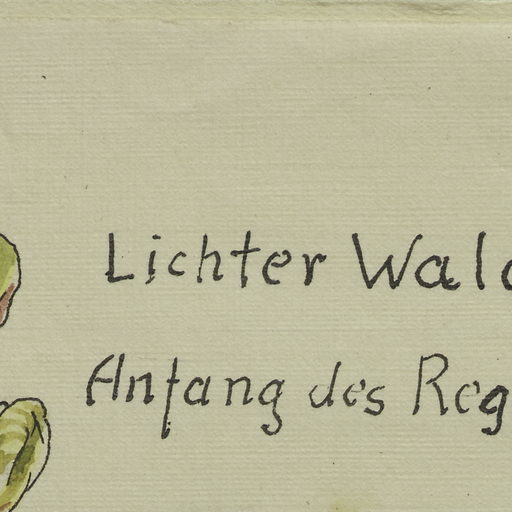 Lichter Wald
Anfang des Reg